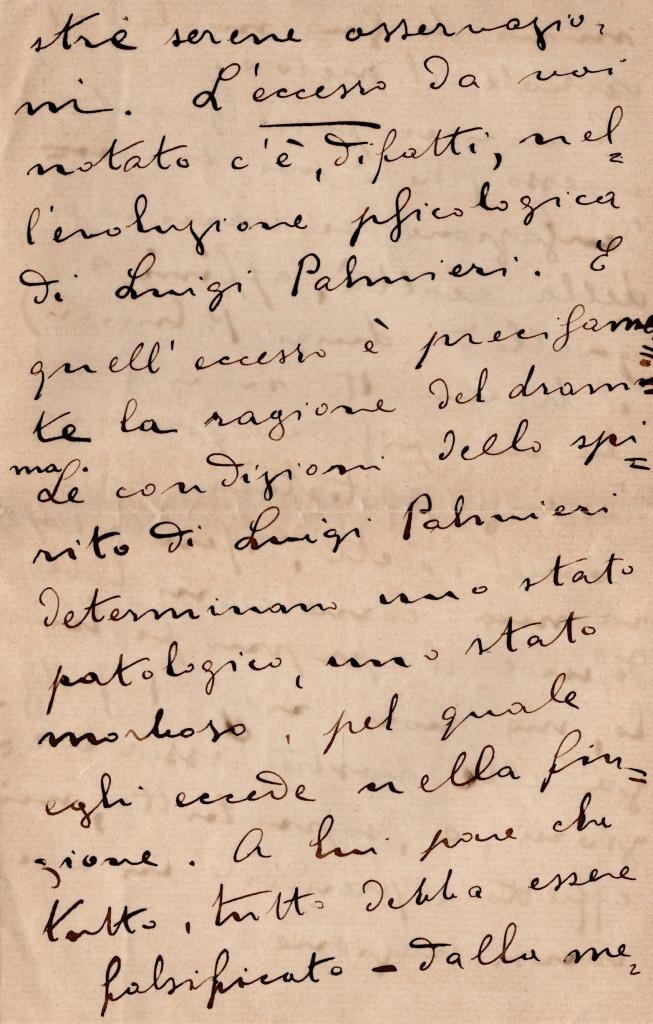 stre serene osservazio-
ni. L'eccesso da voi
notato c'è, difatti, nel-
l'evoluzione psicologica
di Luigi Palmieri. E
quell'eccesso è precisame=
te la ragione del dram=
ma. Le condizioni dello spi=
rito di Luigi Palmieri
determinano uno stato
patologico, uno stato
morboso, pel quale
egli eccede nella fin=
zione. A lui pare che
tutto, tutto debba essere
falsificato - dalla me=